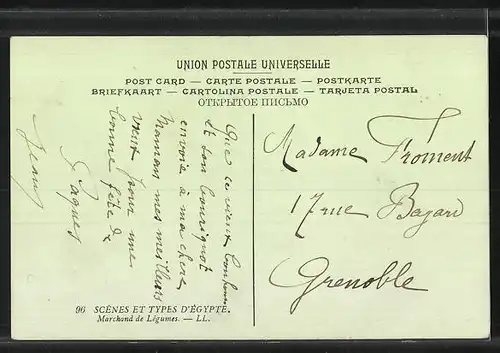 UNION POSTALE UNIVERSELLE
POST CARD — CARTE POSTALE — POSTKARTE
BRIEFKAART — CARTOLINA POSTALE — TARJETA POSTAL
ОТКРЫТОЕ ПИСЬМО
Que ce vieux
et bon bourriquot
envoie à ma chère
Maman mes meilleurs
vœux pour une
bonne fête de
Pâques
Jeany
Madame Froment
17 rue Bayard
Grenoble
96 SCÈNES ET TYPES D'ÉGYPTE.
Marchand de Légumes. — LL.